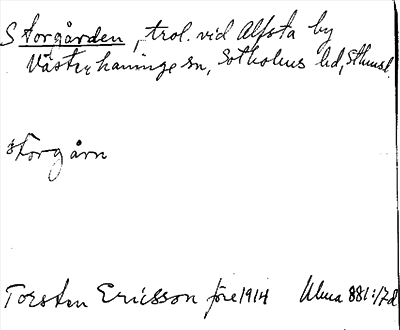 Storgården, trol. vid Alfsta by
Västerhaninge sn, Sotholms hd, Sthmsl.
Storgårn
Torsten Ericsson före 1914 Ulma 881:17d